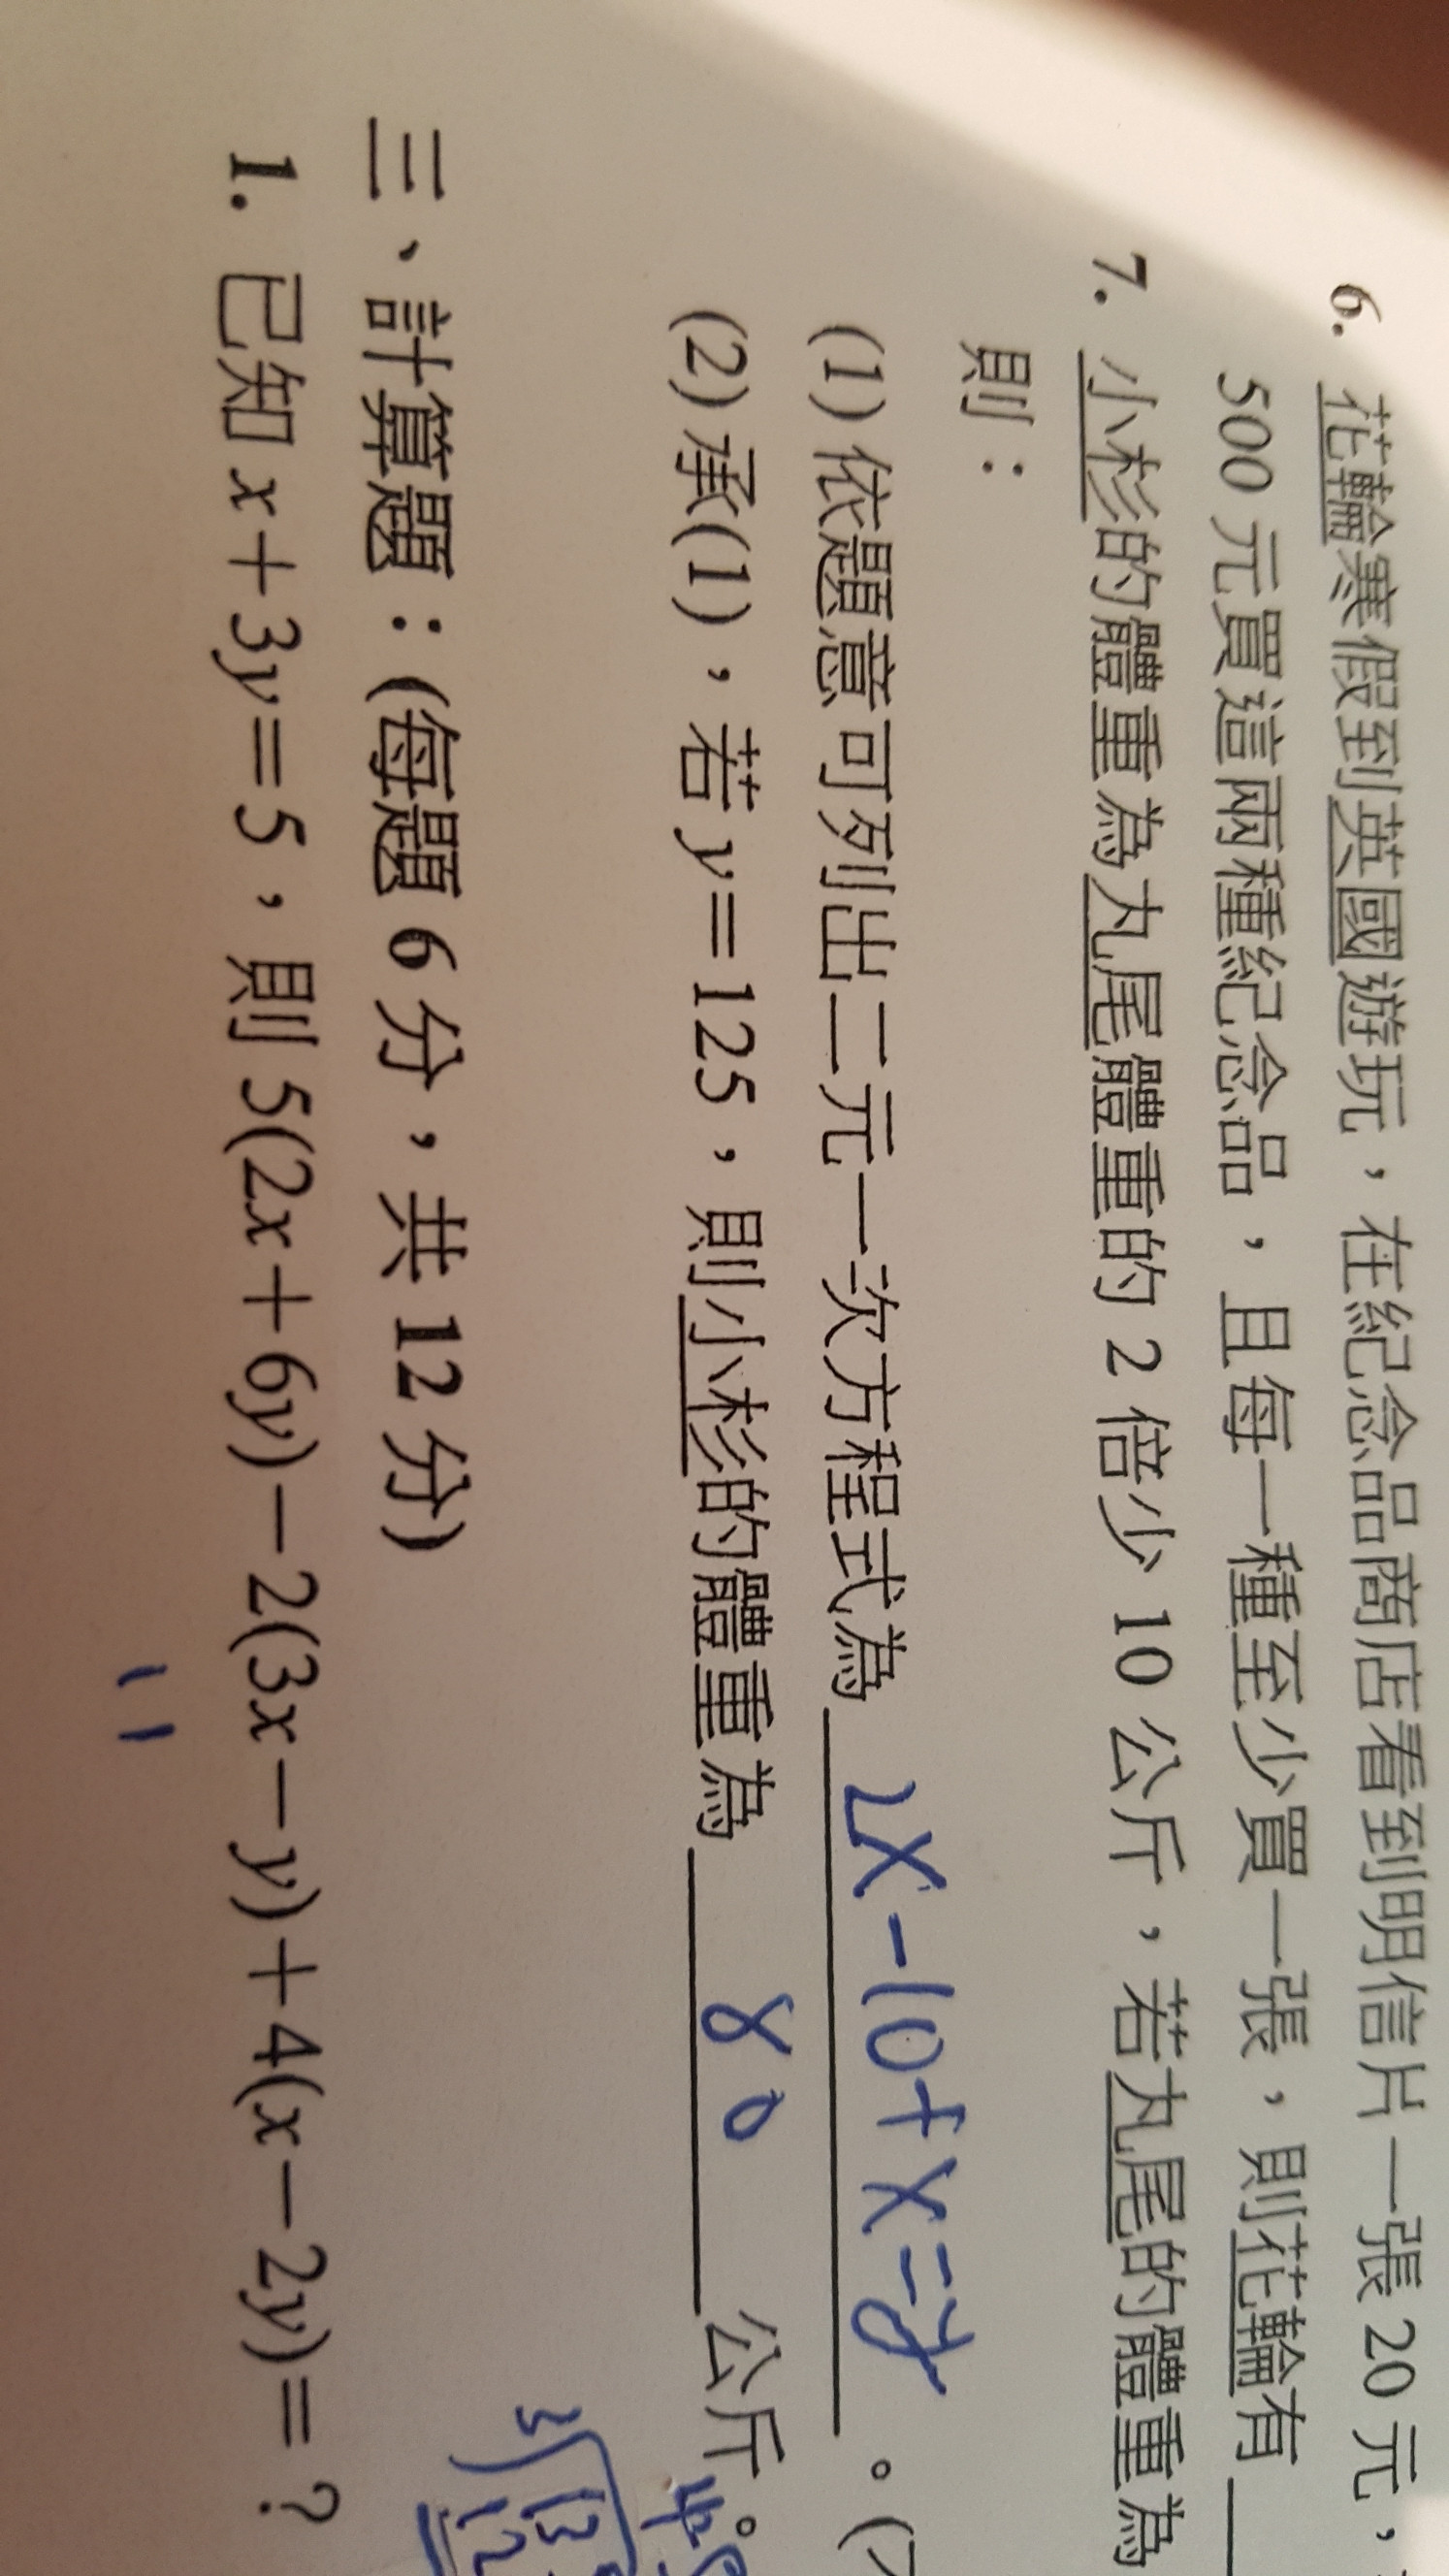 6. 花輪寒假到英國遊玩，在紀念品商店看到明信片一張 20 元，
500 元買這兩種紀念品，且每一種至少買一張，則花輪有
7. 小杉的體重為丸尾體重的 2 倍少 10 公斤，若丸尾的體重為
則：
(1) 依題意可列出二元一次方程式為 2x-10+x=y 。(
(2) 承(1)，若 y=125，則小杉的體重為 80 公斤。
45
3 135
12
三、計算題：(每題 6 分，共 12 分)
1. 已知 x+3y=5，則 5(2x+6y)-2(3x-y)+4(x-2y)=？